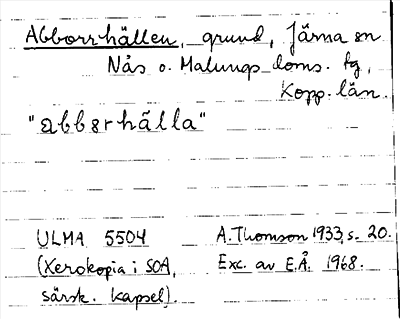 Abborrhällen, grund, Järna sn
Nås o. Malungs doms. tg,
Kopp. län.
"abbərhälla"
ULMA 5504
(Xerokopia i SOA,
särsk. kapsel).
A. Thomson 1933, s. 20.
Exc. av E.Å. 1968.